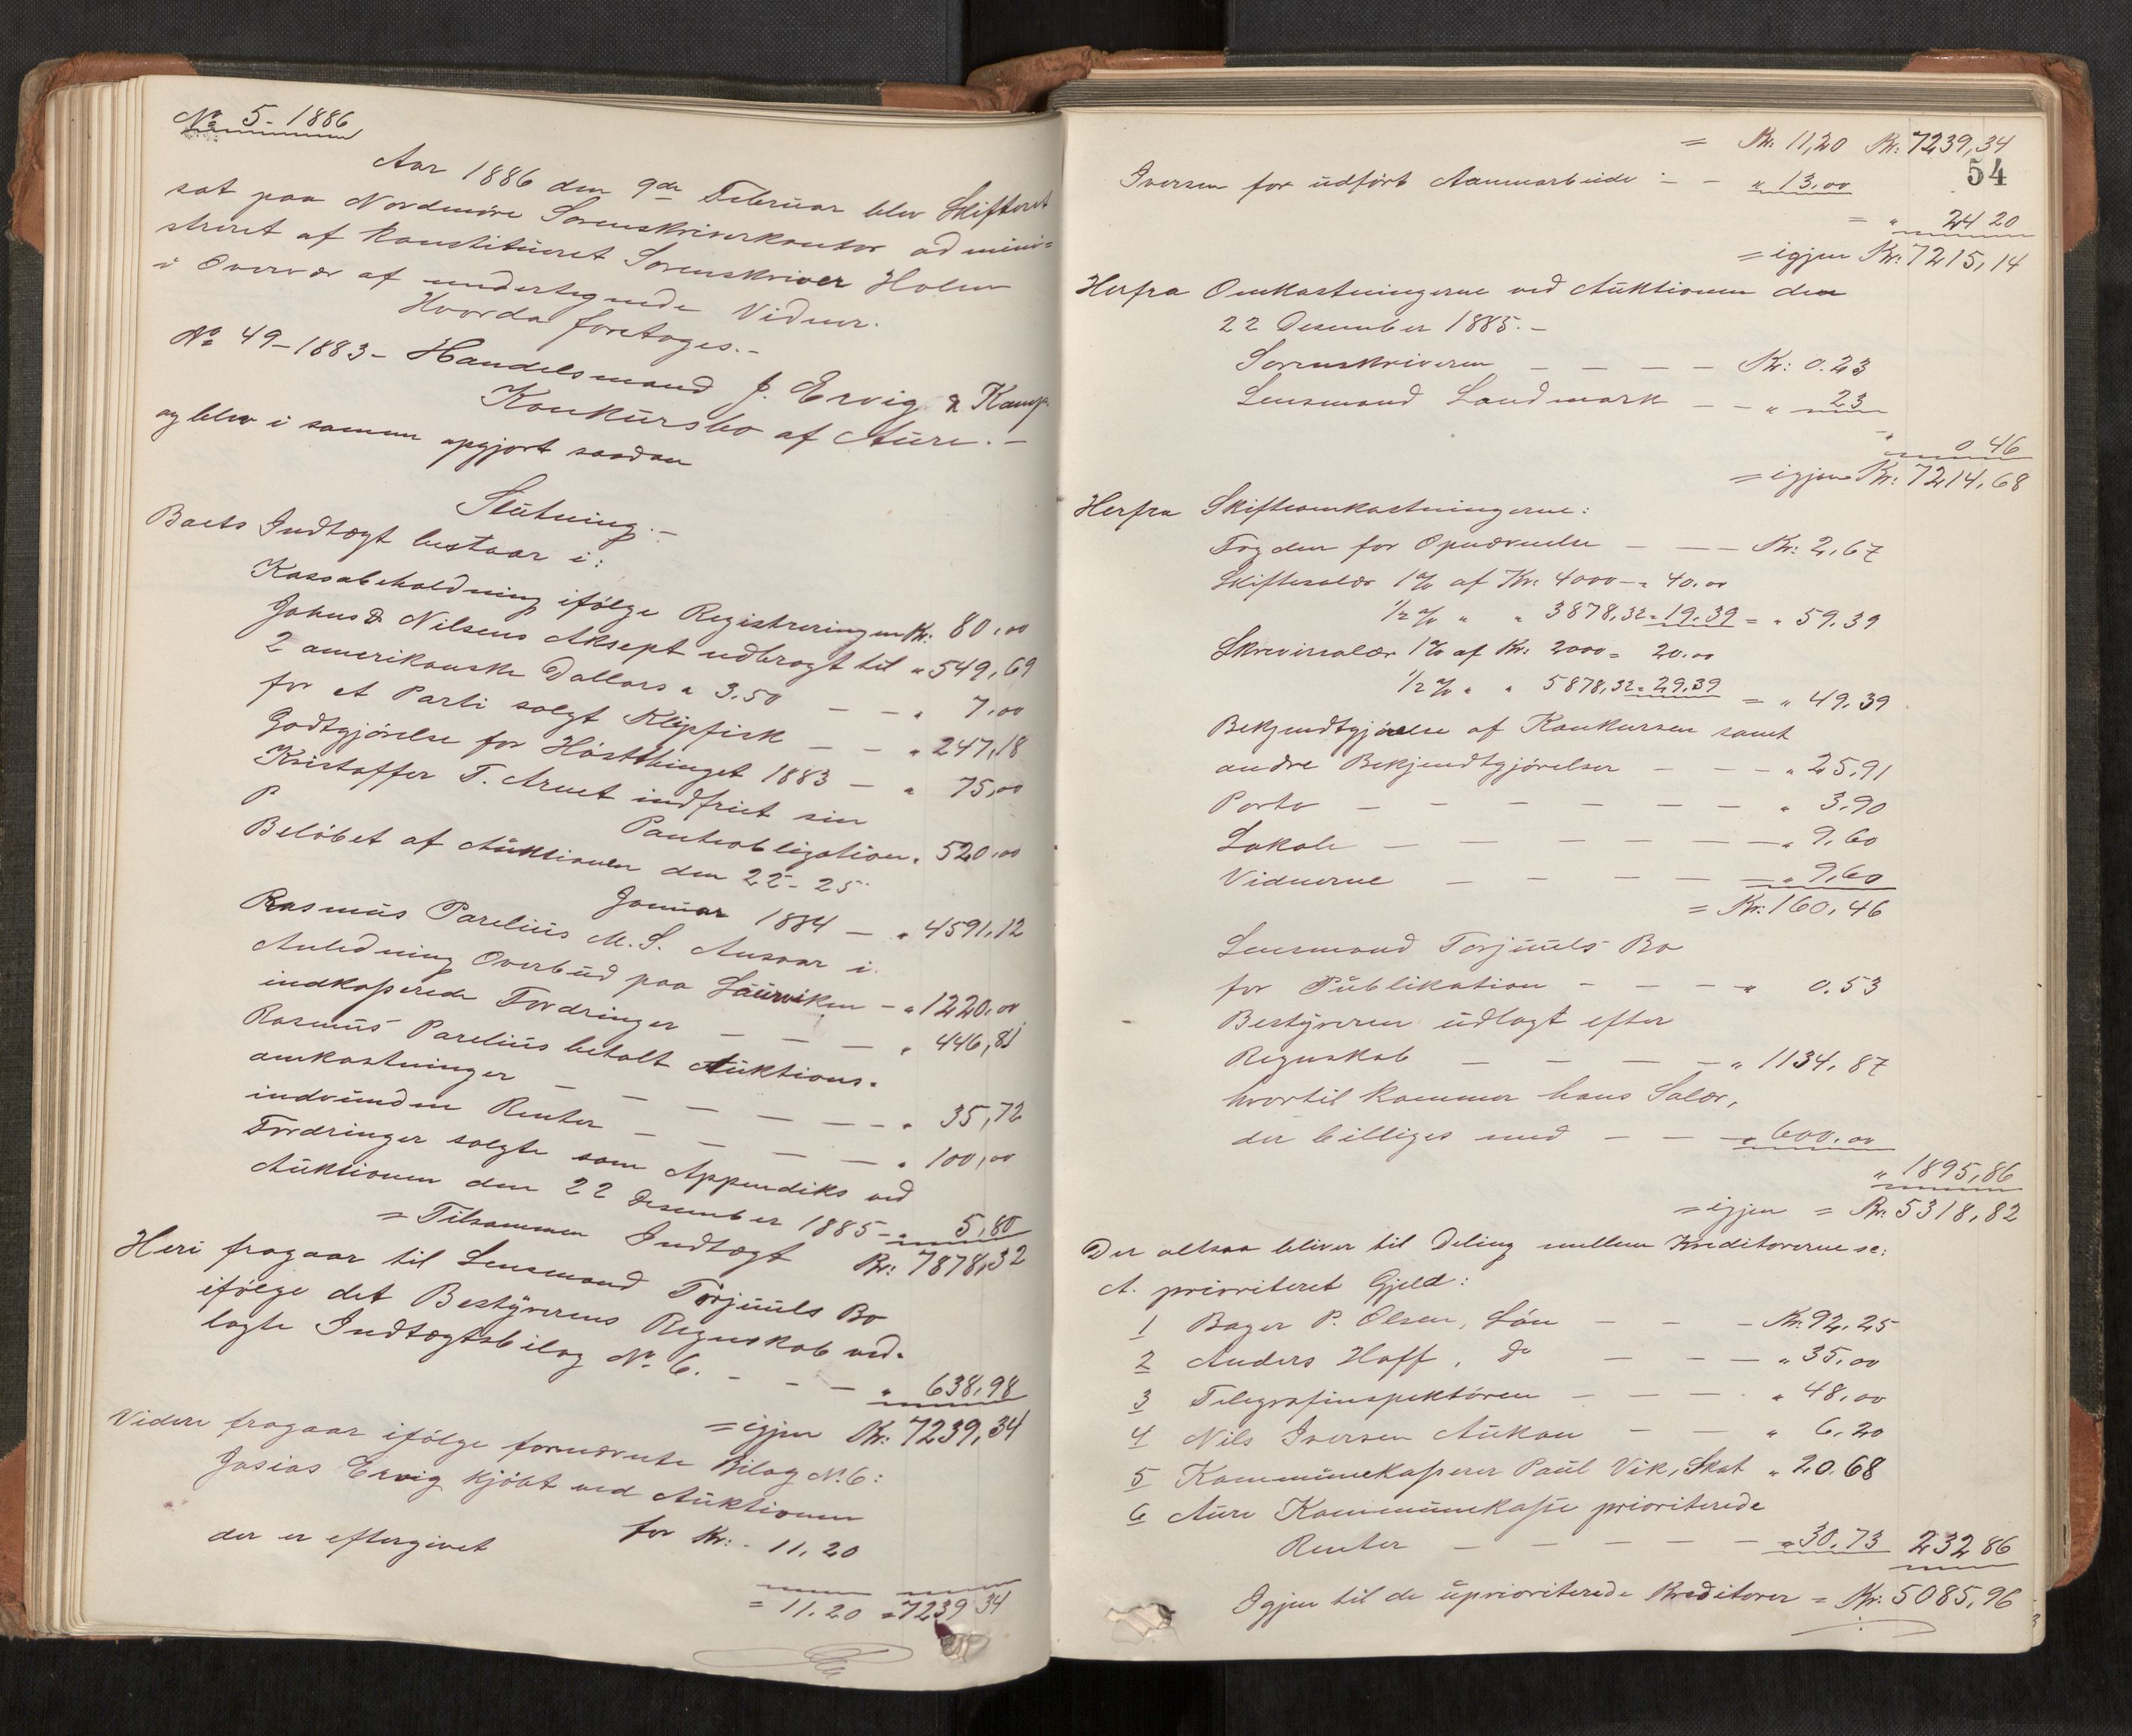 No 5 - 1886
Aar 1886 den 9de Februar blev Skifteret
sat paa Nordmøre Sorenskriverkontor admini=
streret af konstitueret Sorenskriver Holm
i Overvær af undertegnede Vidner.
Hvorda foretoges.-
No 49-1883- Handelsmand J. Ervig & Komp.
Konkursbo af Aure.-
og blev i samme opgjort saadan
Slutning.-
Boets Indtægt bestaar i:
Kassabeholdning ifølge Registreringen Kr: 80,00
Johns & Nilsens Aksept udbragt til " 549,69
2 amerikanske Dollars a 3.50 — — " 7,00
for et Parti solgt Klipfisk — — " 247,18
Godtgjørelse for Høstthinget 1883 — " 75,00
Kristoffer T. Arnet indfriet sin
P
Panteobligation " 520,00
Beløbet af Auktionen den 22-25
Januar 1884 — " 4591,12
Rasmus Parelius M. S. Ansvar i
Anledning Overbud paa Laurviken - " 1220,00
indkasserede Fordringer — — — " 446,81
Rasmus Parelius betalt Auktions-
omkostninger — — — — — " 35,72
indvundne Renter — — — — " 100,00
Fordringer solgte som Appendiks ved
Auktionen den 22 Desember 1885 - " 5,80
= Tilsammen Indtægt Kr: 7878,32
Heri fragaar til Lensmand Torjuuls Bo
ifølge det Bestyrerens Regnskab ved-
lagte Indtægtsbilag No 6. — — — " 638,98
= igjen Kr: 7239,34
Videre fragaar ifølge fornævnte Bilag No 6:
Josias Ervig kjøbt ved Auktionen
for Kr: 11.20
der er eftergivet
= 11.20 = 7239 34
= Kr. 11,20 Kr: 7239,34
54
Iversen for udført Aannarbeide — — " 13,00
= " 24 20
= igjen Kr: 7215,14
Herfra Omkostningerne ved Auktionen den
22 Desember 1885.-
Sorenskriveren — — — — Kr: 0.23
Lensmand Landmark — — " 23
" 0 46
= igjen Kr: 7214,68
Herfra Skifteomkostningerne:
Fogden for Opnævnelse — — — Kr: 2,67
Skiftesalær 1% af Kr: 4000 - = 40,00
1/2 % " " 3878,32 = 19.39 = " 59.39
Skriversalær 1% af Kr: 2000 = 20.00
1/2 % " " 5878,32 = 29.39 = " 49.39
Bekjendtgjørelse af Konkursen samt
andre Bekjendtgjørelser — — — " 25,91
Porto — — — — — — — " 3.90
Lokale — — — — — — — " 9,60
Vidnerne — — — — — — " 9,60
= Kr: 160,46
Lensmand Torjuuls Bo
for Publikation — — — " 0.53
Bestyreren udlagt efter
Regnskab — — — — — " 1134,87
hvortil kommer hans Salær,
der billiges med — — — " 600,00
" 1895,86
= igjen = Kr. 5318,82
Der altsaa bliver til Deling mellem Kreditorerne sc:
A. prioriteret Gjeld:
1 Bager P. Olsen, Løn — — — Kr. 92,25
2 Anders Hoff, do — — — " 35,00
3 Telegrafinspektøren — — — " 48,00
4 Nils Iversen Aukan — — " 6,20
5 Kommunekasserer Paul Vik, Skat " 20.68
6 Aure Kommunekasse prioriterede
Renter — — — — — " 30.73 232 86
Igjen til de uprioriterede Kreditorer = Kr: 5085,96